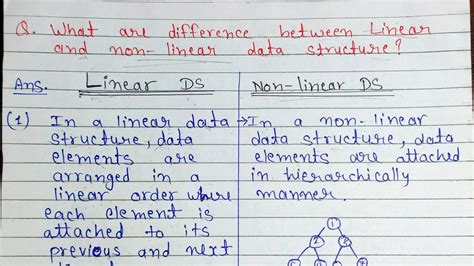 Q. What are difference between Linear
and non-linear data structure?
Ans. Linear DS
Non-linear DS
(1) In a linear data
structure, data
elements are
arranged in a
linear order where
each element is
attached to its
previous and next
→ In a non-linear
data structure, data
elements are attached
in hierarchically
manner.
1
2 3